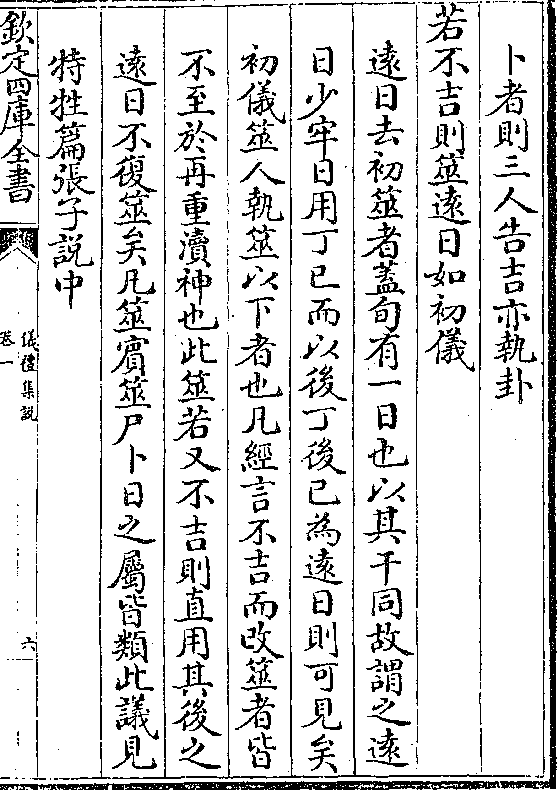 卜者則三人告吉亦執卦
若不吉則筮逺日如初儀
逺日去初筮者蓋旬有一日也以其干同故謂之逺
日少牢日用丁已而以後丁後已為逺日則可見矣
初儀筮人執筮以下者也凡經言不吉而改筮者皆
不至於再重瀆神也此筮若又不吉則直用其後之
逺日不復筮矣凡筮賓筮尸卜日之屬皆類此議見
特牲篇張子説中
欽定四庫全書
儀禮集説
卷一
六